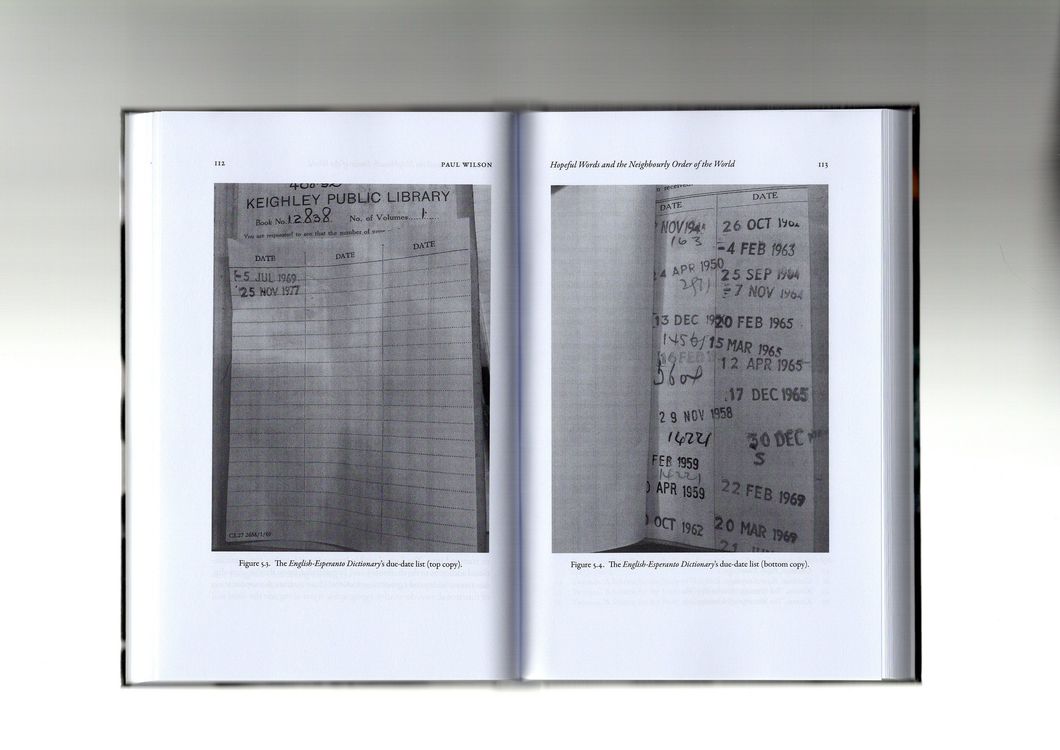 112
PAUL WILSON
KEIGHLEY PUBLIC LIBRARY
Book No. 12838 No. of Volumes 1
You are requested to see that the number of
DATE DATE DATE
-5 JUL 1969
25 NOV 1977
CL27 26M/1/69
Figure 5.3. The English-Esperanto Dictionary's due-date list (top copy).
Hopeful Words and the Neighbourly Order of the World
113
DATE
NOV 194
163
4 APR 1950
13 DEC
1456/
29 NOV 1958
14221
FEB 1959
14221
APR 1959
OCT 1962
DATE
26 OCT 1962
-4 FEB 1963
25 SEP 1964
-7 NOV 1964
20 FEB 1965
15 MAR 1965
12 APR 1965
17 DEC 1965
30 DEC
S
22 FEB 1969
20 MAR 1969
21
Figure 5.4. The English-Esperanto Dictionary's due-date list (bottom copy).